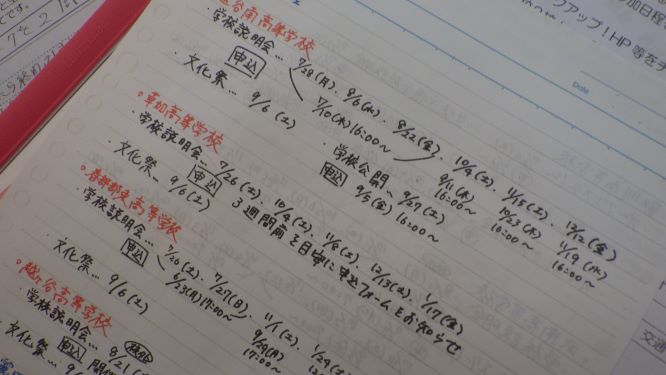 谷南高等学校
・学校説明会… 7/28(月)、8/6(水)、8/22(金)、10/4(土)、11/15(土)、12/12(金)
申込 7/10(木)16:00〜 9/11(木)16:00〜 10/23(木)16:00〜 11/19(水)16:00〜
・文化祭… 9/6(土) ・学校公開… 9/27(土)
申込 9/5(金)16:00〜
○草加高等学校
・学校説明会… 7/26(土)、10/4(土)、11/8(土)、12/13(土)、1/17(金)
申込 3週間前を目安に申込フォームをお知らせ
・文化祭… 9/6(土)
○春日部東高等学校
・学校説明会… 7/26(土)、7/27(日)、11/1(土)、1/24(土)
申込 6/23(月)17:00〜 9/29(月)17:00〜
・文化祭… 9/6(土)
○越ヶ谷高等学校
・学校説明会… 8/21
申込
・文化祭…
Date